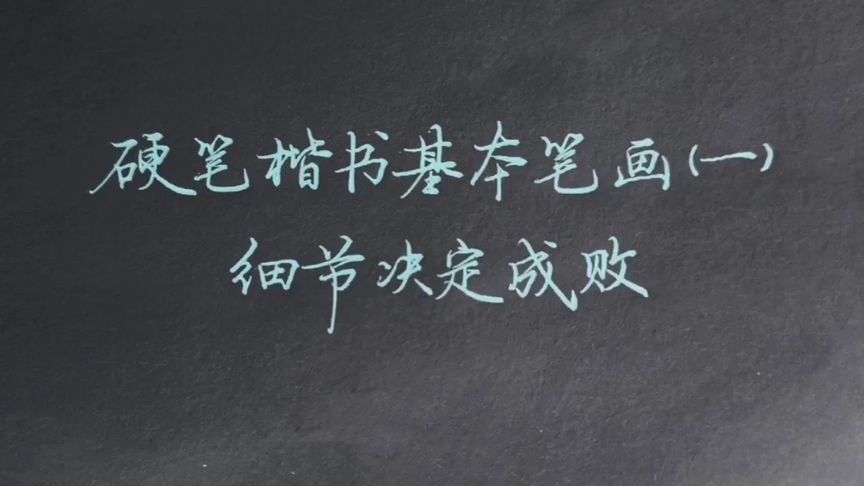 硬笔楷书基本笔画(一)
细节决定成败